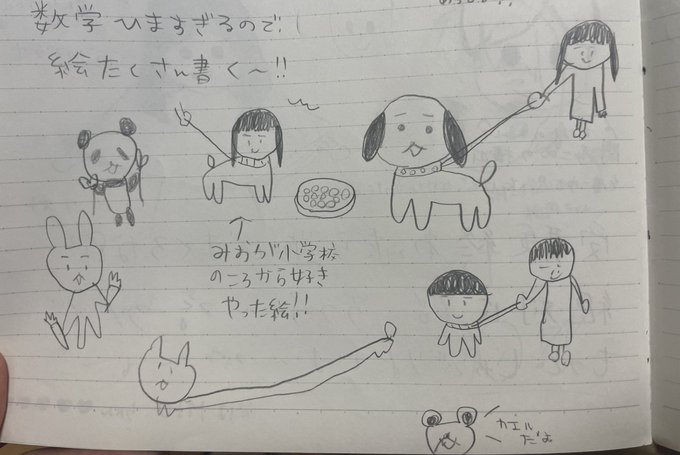 数学ひますぎるので!
絵たくさん書く〜!!
↑
みおらが小学校
のころから好き
やった絵!!
カエル
だよ